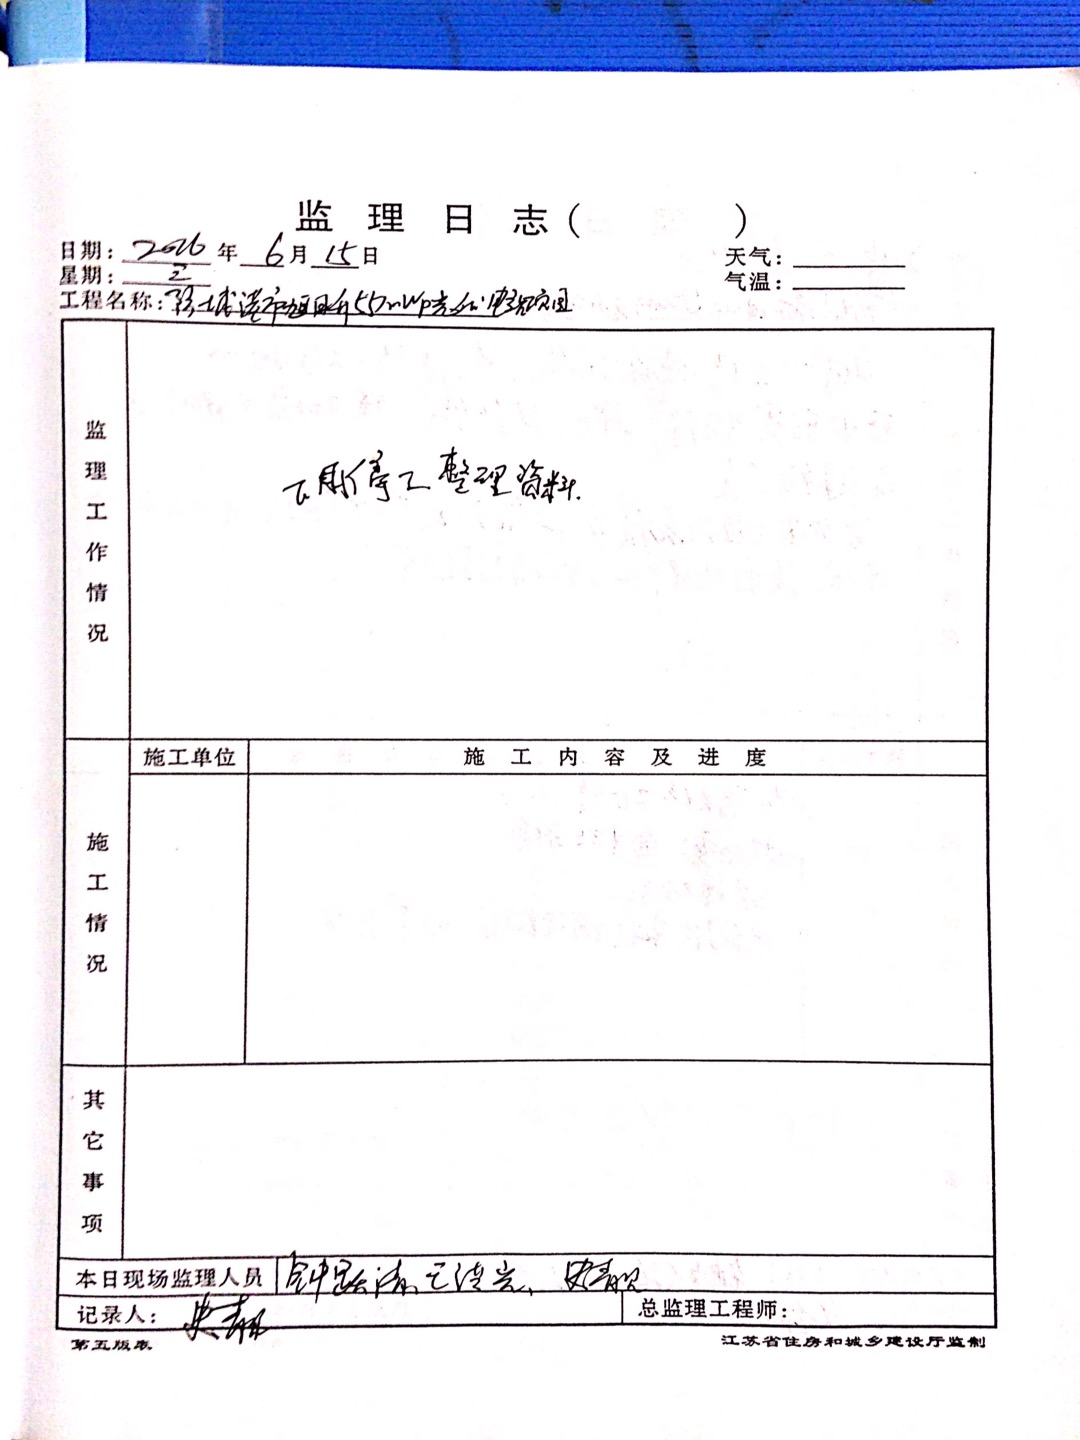 监理日志(          )
日期: 2016 年 6 月 15 日
天气:
星期: 三
气温:
工程名称: 55MWp
监理工作情况
下雨停工整理资料.
施工单位
施工内容及进度
施工情况
其它事项
本日现场监理人员
记录人:
总监理工程师:
第五版表
江苏省住房和城乡建设厅监制